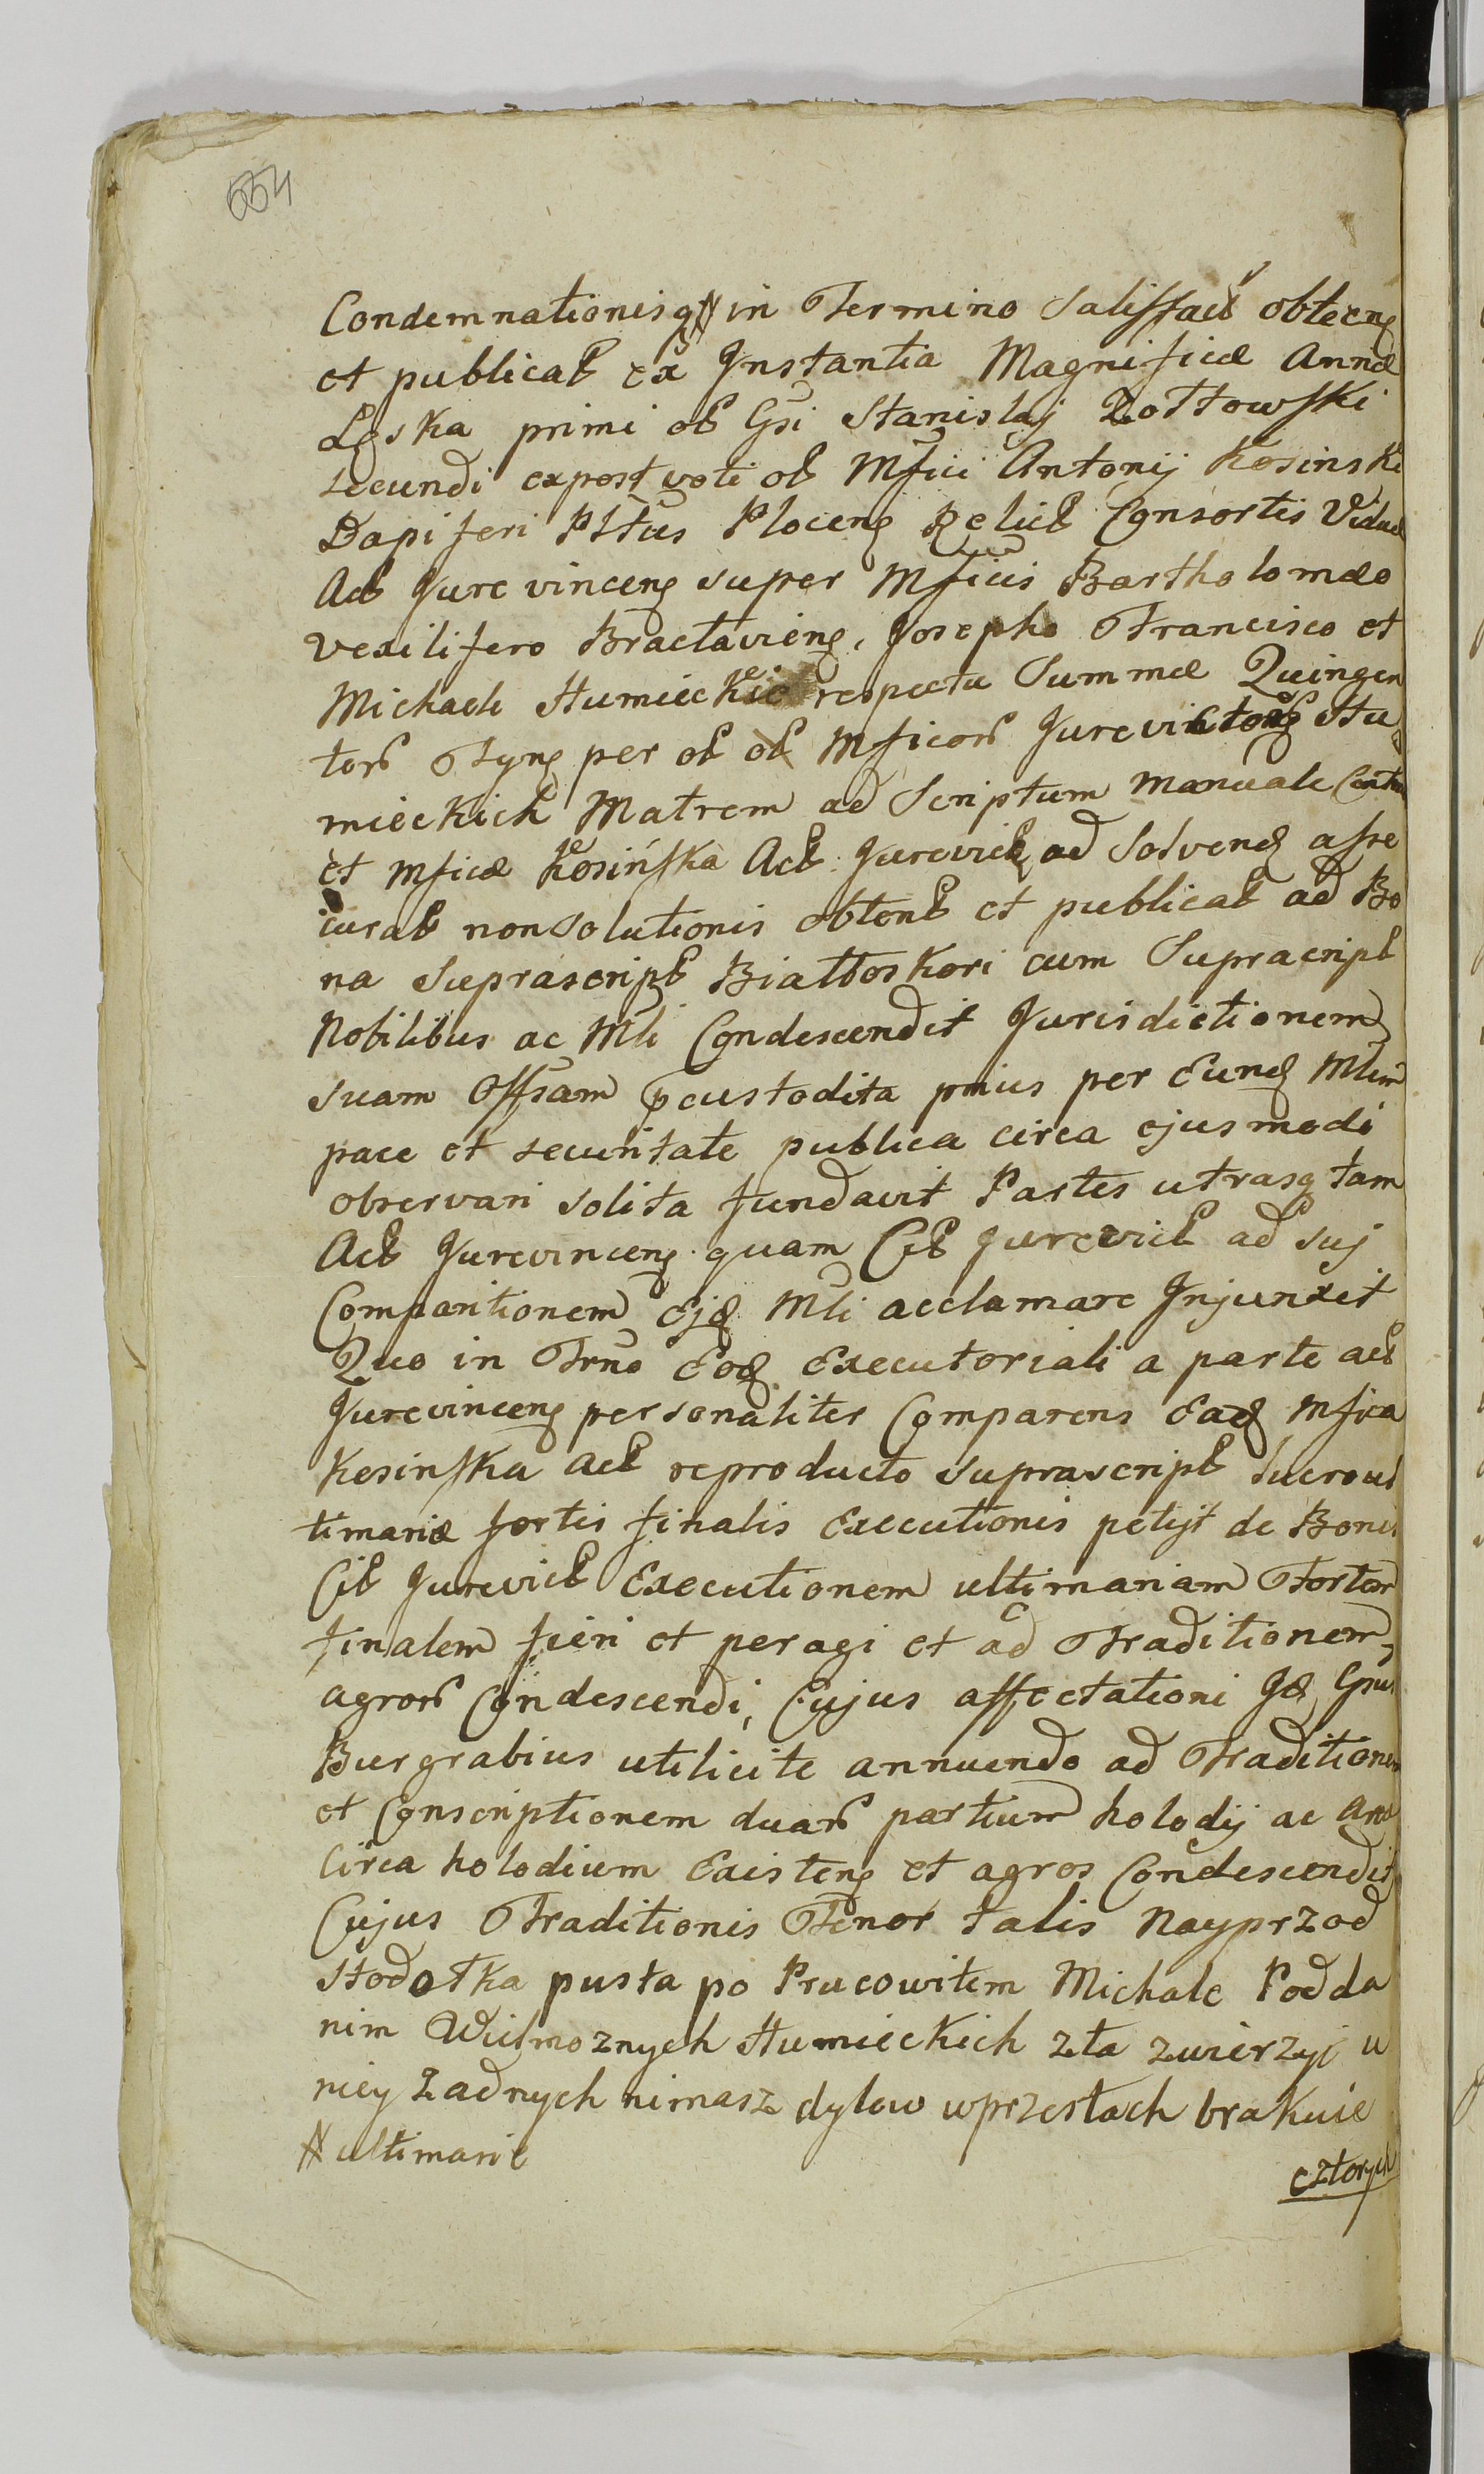 654
Condemnationisq # in Termino Salisfact obteng
et publicat ex Instantia Magnificæ Annæ
Łęska primi ol Gsi Stanislaj Zołtowski
secundi expost voti ol Mfici Antonij Kosinski
Dapiferi Pltus Ploceng Relict Consortis Viduæ
Act Jure vinceng super Mficis Bartholomæo
Vexilifero Braclavieng, Josepho Francisco et
Michaele Humieckie respectu Summæ Quingen
tors Tyng per ol Mficors Jurevictors Hu
mieckich Matrem ad Scriptum Manuale
et Mficæ Kosińska Act Jurevict ad Solvend asse
curat nonsolutionis obtent et publicat ad Bo
na Suprascript Białłoskori cum Supracript
Nobilibus ac Mli Condescendit Jurisdictionem
suam Offsam pcustodita prius per Eund Mlem
pace et securitate publica circa ejusmodi
observari solita fundavit Partes utrasq tam
Act Jurevinceng quam Cit Jurevict ad Suj
Comparitionem Ejd Mli acclamare Injunxit
Quo in Trno Eod Executoriali a parte act
Jurevinceng personaliter Comparens Ead Mfica
Kosinska Act reproducto suprascript lucro ul
timariæ fortis finalis Executionis petijt de Bonis
Cit Jurevict Executionem ultimariam Fortem
finalem fieri et peragi et ad Traditionem
agrors Condescendi, Cujus affectationi Id Gsus
Burgrabius utilicite annuendo ad Traditionem
et Conscriptionem duars partium holodij ac
Circa holodium Existeng et agros Condescendit
Cujus Traditionis Tenor talis Nayprzod
stodołka pusta po Pracowitem Michale Podda
nim Wielmoznych Humieckich zła zwierzyi u
niey Zadnych nimasz dylow wprzesłach brakuie
# ultimarie
cztorych